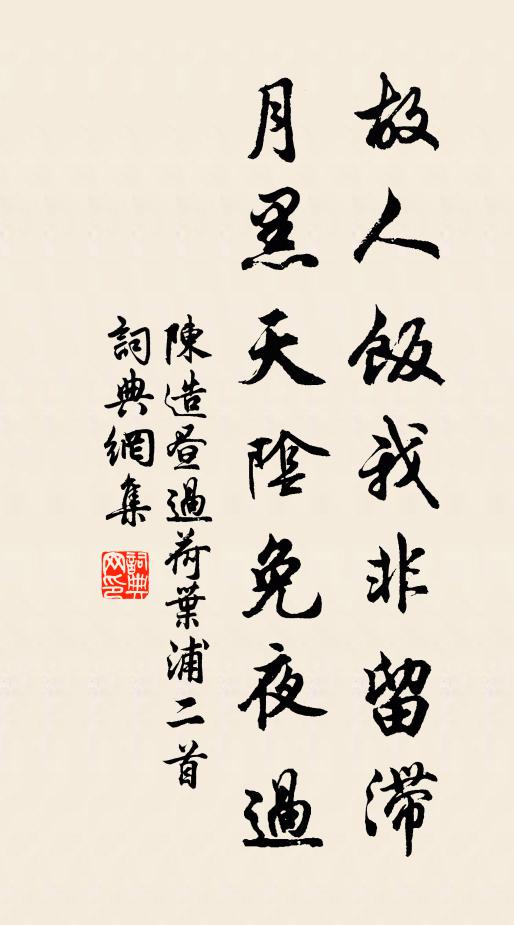 故人飯我非留滯
月黑天陰免夜過
陳造晝過荷葉浦二首
詞典網集
詞典网印